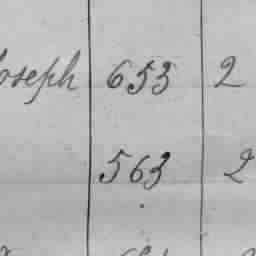 Joseph 653 2
563 2